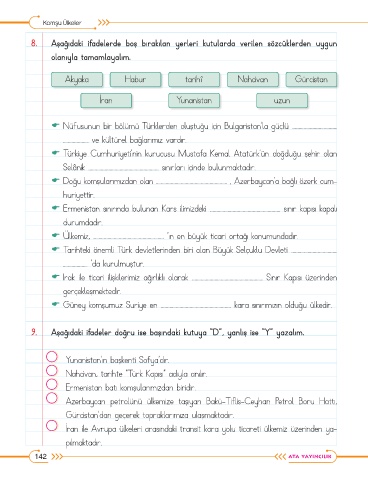 Komşu Ülkeler
8. Aşağıdaki ifadelerde boş bırakılan yerleri kutularda verilen sözcüklerden uygun
olanıyla tamamlayalım.
Akyaka Habur tarihî Nahcivan Gürcistan
İran Yunanistan uzun
Nüfusunun bir bölümü Türklerden oluştuğu için Bulgaristan'la güçlü
ve kültürel bağlarımız vardır.
Türkiye Cumhuriyeti'nin kurucusu Mustafa Kemal Atatürk'ün doğduğu şehir olan
Selânik sınırları içinde bulunmaktadır.
Doğu komşularımızdan olan , Azerbaycan'a bağlı özerk cum-
huriyettir.
Ermenistan sınırında bulunan Kars ilimizdeki sınır kapısı kapalı
durumdadır.
Ülkemiz, 'ın en büyük ticari ortağı konumundadır.
Tarihteki önemli Türk devletlerinden biri olan Büyük Selçuklu Devleti
'da kurulmuştur.
Irak ile ticari ilişkilerimiz ağırlıklı olarak Sınır Kapısı üzerinden
gerçekleşmektedir.
Güney komşumuz Suriye en kara sınırımızın olduğu ülkedir.
9. Aşağıdaki ifadeler doğru ise başındaki kutuya "D", yanlış ise "Y" yazalım.
Yunanistan'ın başkenti Sofya'dır.
Nahcivan, tarihte "Türk Kapısı" adıyla anılır.
Ermenistan batı komşularımızdan biridir.
Azerbaycan petrolünü ülkemize taşıyan Bakü-Tiflis-Ceyhan Petrol Boru Hattı,
Gürcistan'dan geçerek topraklarımıza ulaşmaktadır.
İran ile Avrupa ülkeleri arasındaki transit kara yolu ticareti ülkemiz üzerinden ya-
pılmaktadır.
142 ATA YAYINCILIK